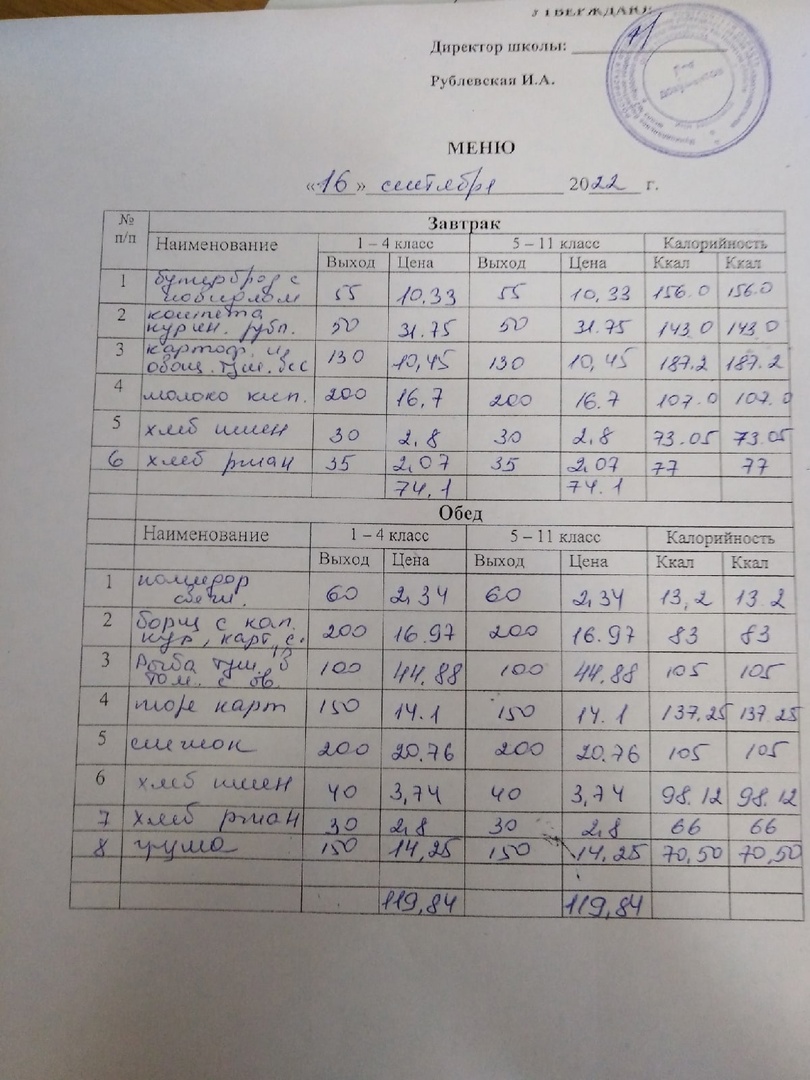 УТВЕРЖДАЮ
Директор школы:
Рублевская И.А.
МЕНЮ
«16» сентября 2022 г.
№ п/п Завтрак
Наименование 1 – 4 класс 5 – 11 класс Калорийность
Выход Цена Выход Цена Ккал Ккал
1 бутерброд с
повидлом 55 10,33 55 10,33 156.0 156.0
2 котлета
курин. рубл. 50 31.75 50 31.75 143.0 143.0
3 картоф. и
овощ. туш. 130 10,45 130 10,45 187.2 187.2
4 молоко кип. 200 16,7 200 16.7 107.0 107.0
5 хлеб пшен 30 2,8 30 2,8 73.05 73.05
6 хлеб ржан 35 2,07 35 2,07 77 77
74.1 74.1
Обед
Наименование 1 – 4 класс 5 – 11 класс Калорийность
Выход Цена Выход Цена Ккал Ккал
1 помидор
свеж. 60 2,34 60 2,34 13,2 13.2
2 борщ с кап.
кур, карт, с. 200 16.97 200 16.97 83 83
3 Рыба туш. в
том. с ов. 100 44.88 100 44.88 105 105
4 пюре карт 150 14.1 150 14.1 137,25 137.25
5 снежок 200 20.76 200 20.76 105 105
6 хлеб пшен 40 3,74 40 3,74 98.12 98.12
7 хлеб ржан 30 2,8 30 2,8 66 66
8 груша 150 14,25 150 14.25 70,50 70,50
119,84 119,84